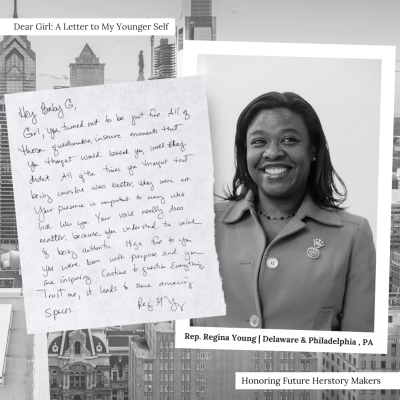 Dear Girl: A Letter to My Younger Self
Hey Baby G,
Girl, you turned out to be just fine. All of
those questionable, insecure moments that
you thought would break you, well they
didn't. All of the times you thought that
being invisible was better, they were not.
Your presence is important to many who
look like you. Your voice really does
matter, because you understand the value
of being authentic. High five to you
you were born with purpose and you
are inspiring. Continue to question everything.
Trust me, it leads to some amazing
spaces.
Rep. Regina Young | Delaware & Philadelphia , PA
Honoring Future Herstory Makers